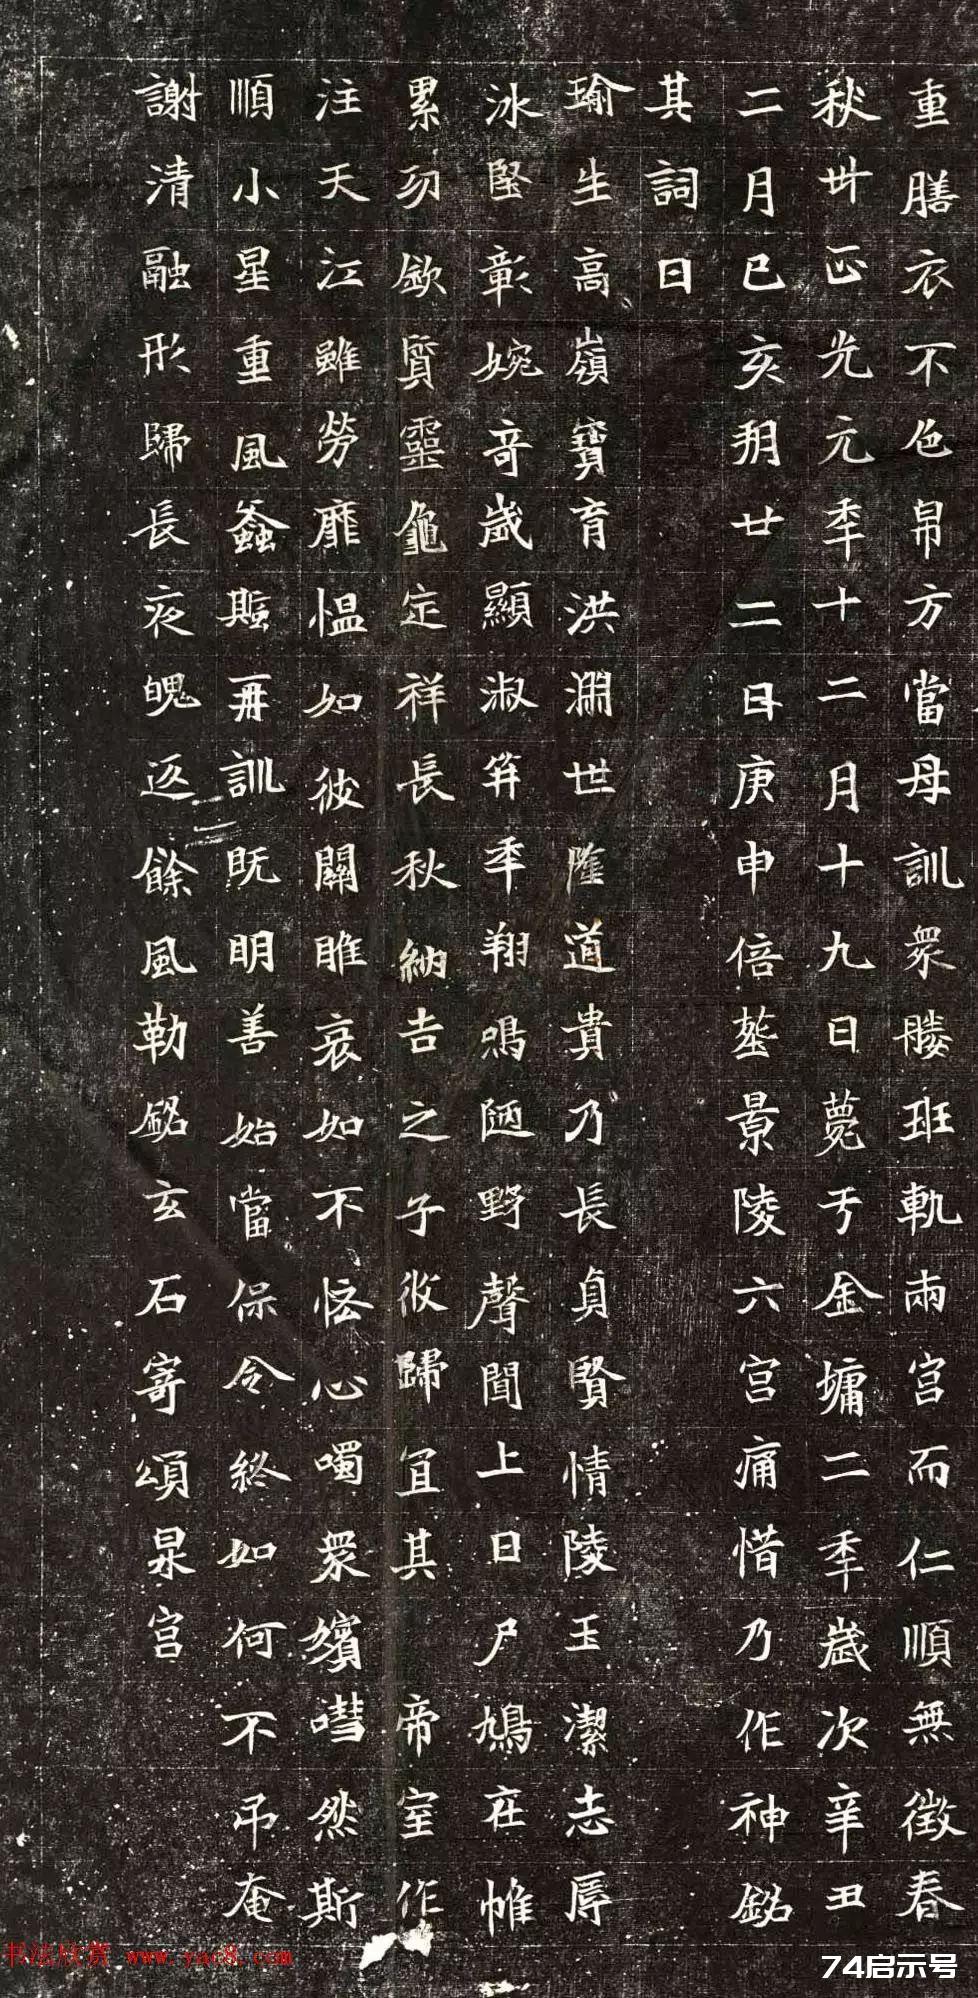 重膳衣不色帛方當母訓衆媵班軌兩宫而仁順無徵春
秋卅正光元年十二月十九日薨于金墉二年歲次辛丑
二月己亥朔廿二日庚申倍塟景陵六宫痛惜乃作神銘
其詞曰
瑜生高嶺寶育洪淵世隆道貴乃長貞賢情陵玉潔志辱
氷堅彰婉奇歲顯淑笄年翔鳴陋野聲聞上日尸鳩在帷
累刃欽質靈龜定祥長秋納吉之子攸歸宜其帝室作
注天江雖勞靡愠如彼關雎哀如不恡心噣衆嬪嘒然斯
順小星重風螽斯再訓既明善始當保令終如何不弔奄
謝清融形歸長夜魄返餘風勒銘玄石寄頌泉宫
书法欣赏 www.yac8.com
74启示号